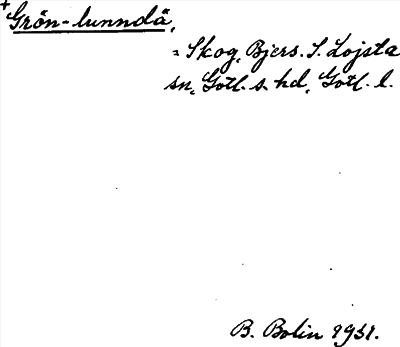 +Grön-lunndä,
= Skog, Bjers. S. Lojsta
sn, Gotl. s. hd, Gotl. l.
B. Bolin 1931.